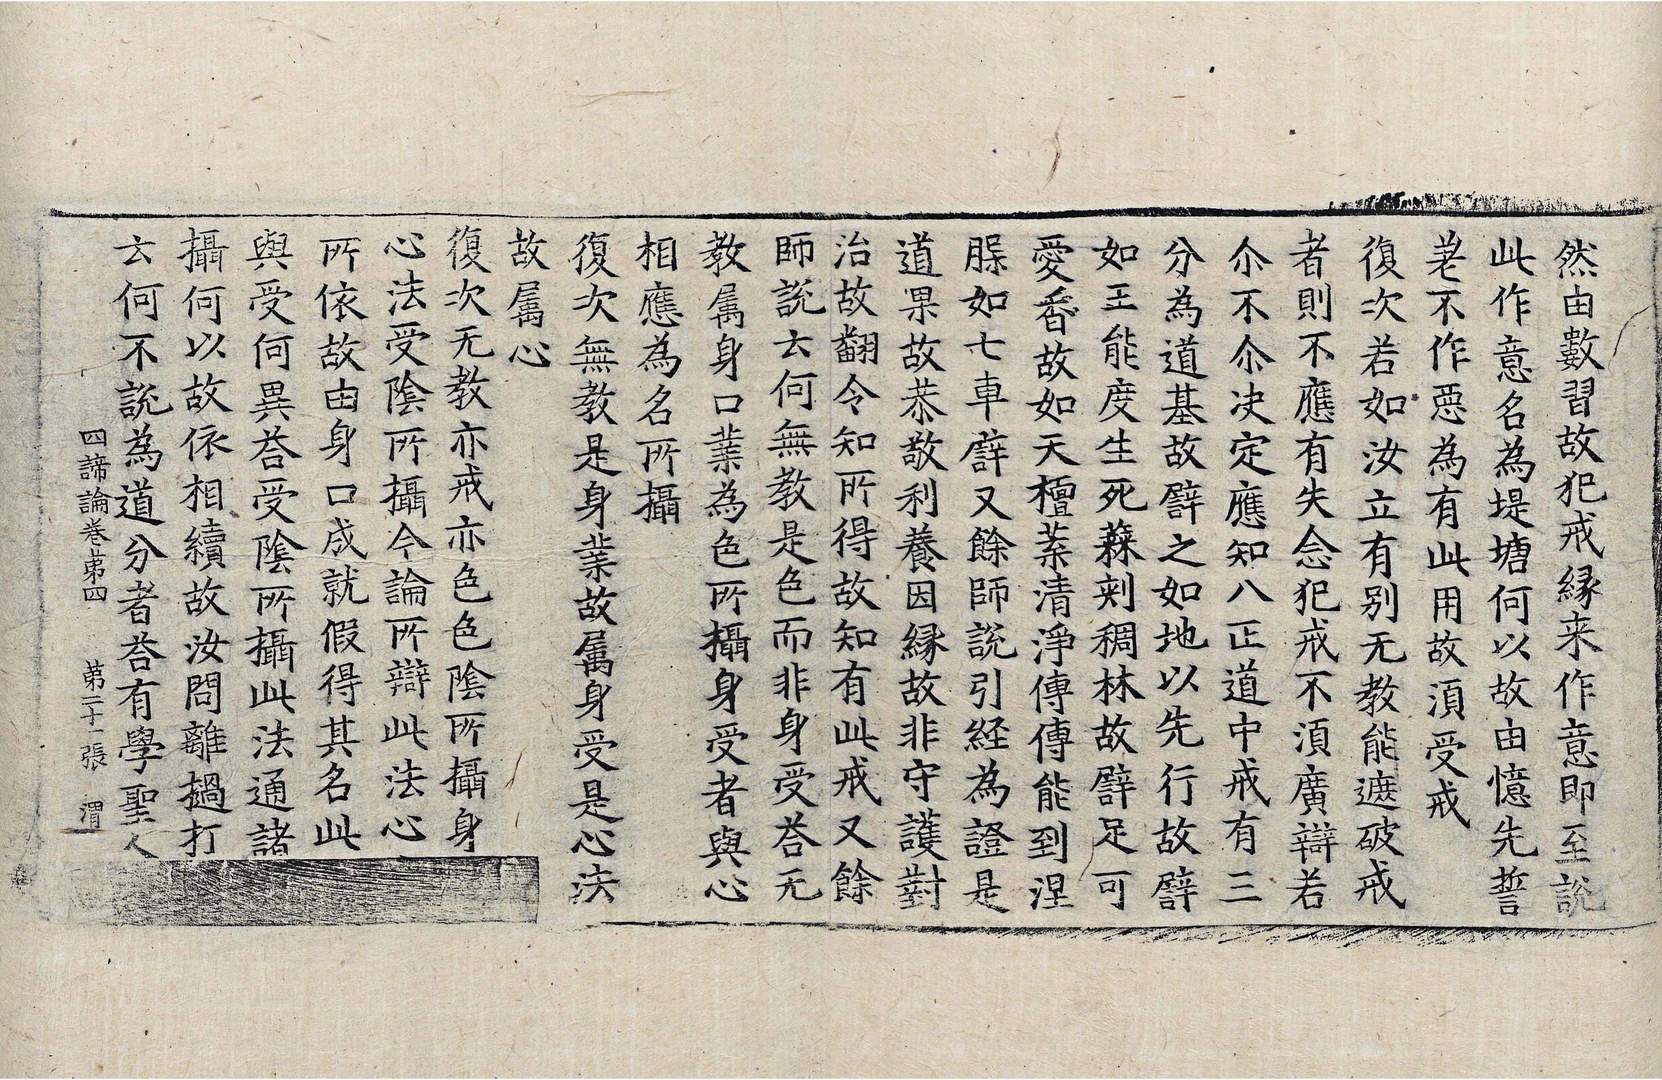 然由數習故犯戒縁来作意即至說
此作意名為堤塘何以故由憶先誓
老不作惡為有此用故湏受戒
復次若如汝立有别无教能遮破戒
者則不應有失念犯戒不湏廣辯若
尒不尒决定應知八正道中戒有三
分為道基故譬之如地以先行故譬
如王能度生死蕀刾稠林故譬足可
愛香故如天檀葇清淨傳傳能到涅
脵如七車譬又餘師說引経為證是
道果故恭敬利養因縁故非守護對
治故翻令知所得故知有此戒又餘
師說云何無教是色而非身受荅无
教属身口業為色所攝身受者與心
相應為名所攝
復次無教是身業故属身受是心法
故属心
復次无教亦戒亦色色陰所攝身
心法受陰所攝今論所辯此法心
所依故由身口成就假得其名此
與受何異荅受陰所攝此法通諸
攝何以故依相續故汝問離撾打
云何不說為道分者荅有學聖人
四諦論卷苐四　苐二十一張　渭